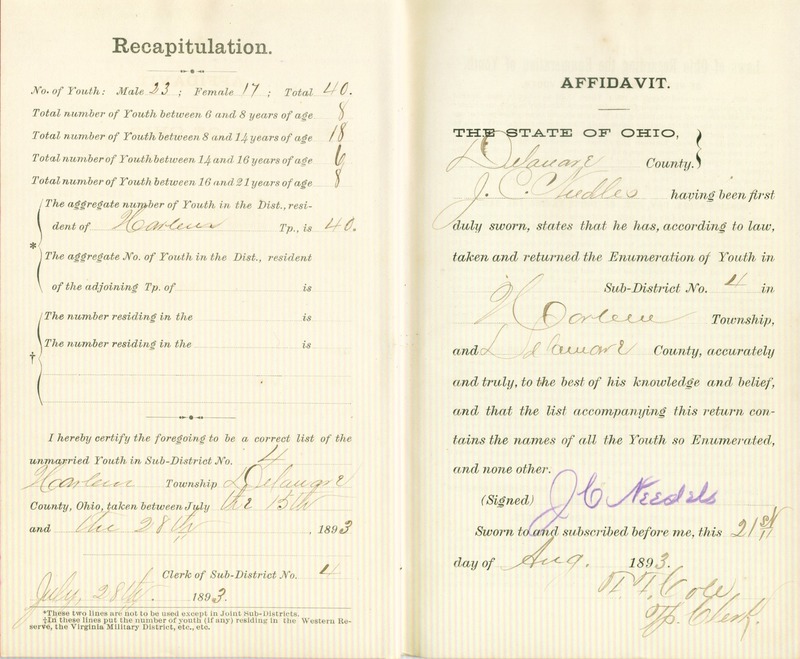 Recapitulation.
No. of Youth: Male 23; Female 17; Total 40.
Total number of Youth between 6 and 8 years of age 8
Total number of Youth between 8 and 14 years of age 18
Total number of Youth between 14 and 16 years of age 6
Total number of Youth between 16 and 21 years of age 8
The aggregate number of Youth in the Dist., resi-
dent of Harlem Tp., is 40.
*
The aggregate No. of Youth in the Dist., resident
of the adjoining Tp. of is
The number residing in the is
The number residing in the is
†
I hereby certify the foregoing to be a correct list of the
unmarried Youth in Sub-District No. 4
Harlem Township Delaware
County, Ohio, taken between July the 15th
and the 28th, 1893
Clerk of Sub-District No. 4
July, 28th. 1893.
*These two lines are not to be used except in Joint Sub-Districts.
†In these lines put the number of youth (if any) residing in the Western Re-
serve, the Virginia Military District, etc., etc.
AFFIDAVIT.
THE STATE OF OHIO,
Delaware County.
J. C. Needles having been first
duly sworn, states that he has, according to law,
taken and returned the Enumeration of Youth in
Sub-District No. 4 in
Harlem Township,
and Delaware County, accurately
and truly, to the best of his knowledge and belief,
and that the list accompanying this return con-
tains the names of all the Youth so Enumerated,
and none other.
(Signed) J C Needels
Sworn to and subscribed before me, this 21st
day of Aug. 1893.
T. T. Cole
Tp. Clerk.